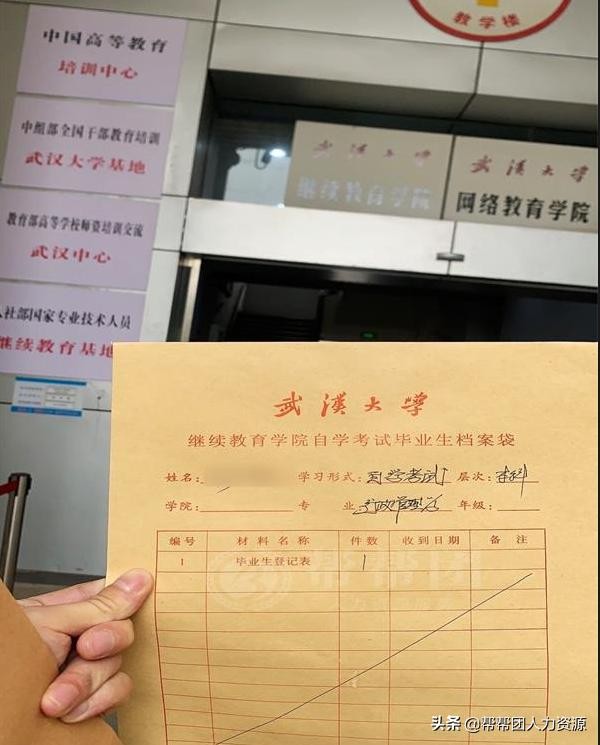 教学楼
中国高等教育
培训中心
中组部全国干部教育培训
武汉大学基地
教育部高等学校师资培训交流
武汉中心
人社部国家专业技术人员
继续教育基地
武漢大學
继续教育学院
武漢大學
网络教育学院
武漢大學
继续教育学院自学考试毕业生档案袋
姓名: 学习形式: 自学考试 层次: 本科
学院: 专业 行政管理 年级:
编号 材料名称 件数 收到日期 备注
1 毕业生登记表 1
帮帮团
头条 @帮帮团人力资源